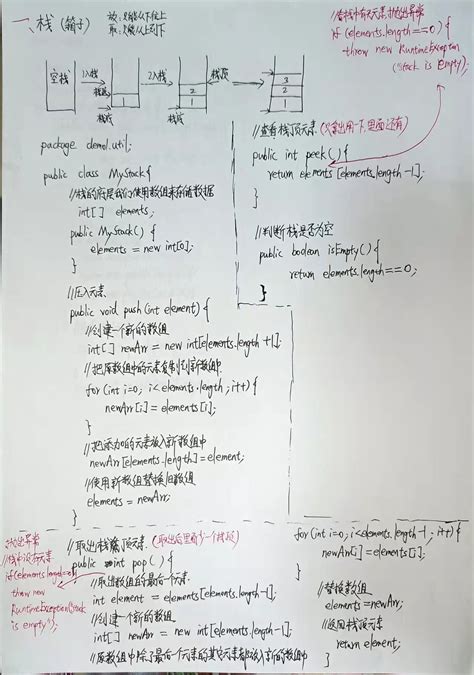 一、栈（箱子）
放：只能从下往上
取：只能从上到下
空栈
1入栈
栈底
1
栈底
2入栈
2
1
栈底
栈顶
3
2
1
package demo1.util;
public class MyStack{
//栈的底层我们使用数组来存储数据
int[] elements;
public MyStack() {
elements = new int[0];
}
//压入元素
public void push(int element) {
//创建一个新的数组
int[] newArr = new int[elements.length +1];
//把原数组中的元素复制到新数组中
for (int i=0; i<elements.length; i++) {
newArr[i] = elements[i];
}
//把添加的元素放入新数组中
newArr[elements.length]=element;
//使用新数组替换旧数组
elements = newArr;
}
//若栈中有无元素,抛出异常
if (elements.length==0) {
throw new RuntimeException
(Stack is Empty);
//查看栈顶元素（只拿出用一下,里面还有）
public int peek() {
return elements [elements.length-1];
}
//判断栈是否为空
public boolean isEmpty() {
return elements.length==0;
}
}
//抛出异常
//栈中没有元素
if(elements.length==0)
throw new
RuntimeException("Stack
is empty");
//取出栈顶元素（取出后里面少一个
public int pop() {
//取出数组的最后一个元素
int element = elements[elements.length-1];
//创建一个新的数组
int[] newArr = new int[elements.length-1];
//原数组中除了最后一个元素的其它元素都放入新的数组中
for(int i=0; i<elements.length-1; i++) {
newArr[i] = elements[i];
}
//替换数组
elements=newArr;
//返回栈顶元素
return element;
}